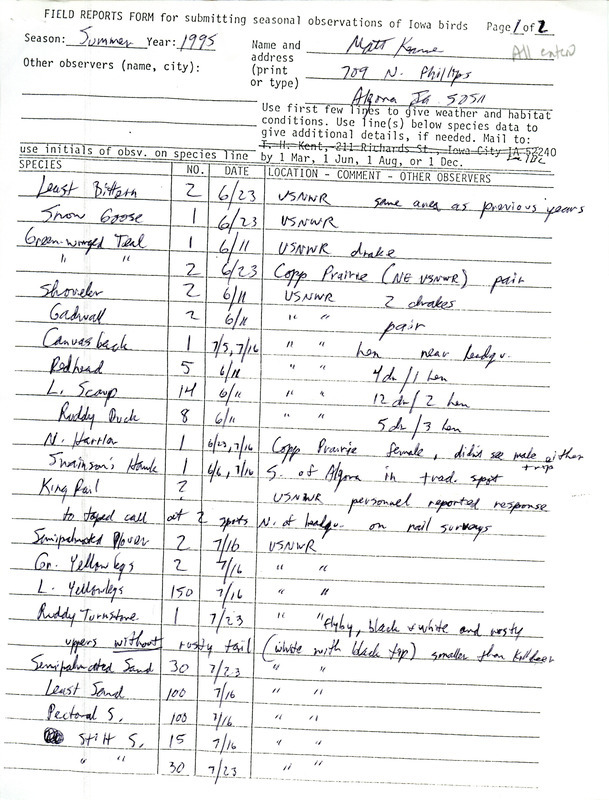 FIELD REPORTS FORM for submitting seasonal observations of Iowa birds Page 1 of 2
Season: Summer Year: 1995
All entered
Name and address (print or type)
Matt Kenne
709 N. Phillips
Algona Ia 50511
Other observers (name, city):
Use first few lines to give weather and habitat
conditions. Use line(s) below species data to
give additional details, if needed. Mail to:
T. H. Kent, 211 Richards St., Iowa City IA 52240
by 1 Mar, 1 Jun, 1 Aug, or 1 Dec.
use initials of obsv. on species line
SPECIES NO. DATE LOCATION - COMMENT - OTHER OBSERVERS
Least Bittern 2 6/23 USNWR same area as previous years
Snow Goose 1 6/23 USNWR
Green-winged Teal 1 6/11 USNWR drake
" " 2 6/23 Copp Prairie (NE USNWR) pair
Shoveler 2 6/11 USNWR 2 drakes
Gadwall 2 6/11 " " pair
Canvasback 1 7/5, 7/16 " " hen near headqu.
Redhead 5 6/11 " " 4 dr/1 hen
L. Scaup 14 6/11 " " 12 dr/2 hen
Ruddy Duck 8 6/11 " " 5 dr/3 hen
N. Harrier 1 6/23, 7/16 Copp Prairie female, didn't see male either trip
Swainson's Hawk 1 6/6, 7/16 S. of Algona in trad. spot
King Rail 2 USNWR personnel reported response
to taped call at 2 spots N. of headqu. on rail surveys
Semipalmated Plover 2 7/16 USNWR
Gr. Yellowlegs 2 7/16 " "
L. Yellowlegs 150 7/16 " "
Ruddy Turnstone 1 7/23 " " flyby, black & white and rusty
uppers without rusty tail (white with black tip) smaller than Killdeer
Semipalmated Sand 30 7/23 " "
Least Sand 100 7/16 " "
Pectoral S. 100 7/16 " "
Stilt S. 15 7/16 " "
" " 30 7/23 " "